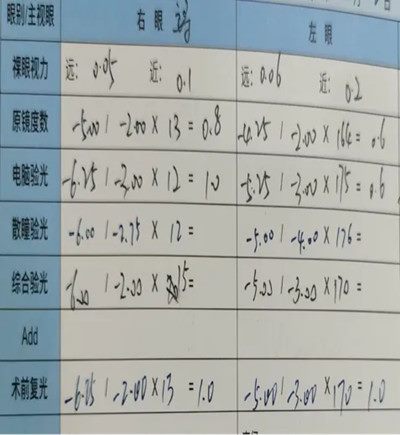 眼别/主视眼 右眼 左眼
裸眼视力 远: 0.05 近: 0.1 远: 0.06 近: 0.2
原镜度数 -5.00 / -2.00 × 13 = 0.8 -4.25 / -2.00 × 164 = 0.6
电脑验光 -6.25 / -3.00 × 12 = 1.0 -5.25 / -3.00 × 175 = 0.6
散瞳验光 -6.00 / -2.75 × 12 = -5.00 / -4.00 × 176 =
综合验光 -6.00 / -2.00 × 15 = -5.00 / -3.00 × 170 =
Add
术前复光 -6.25 / -2.00 × 13 = 1.0 -5.00 / -3.00 × 170 = 1.0